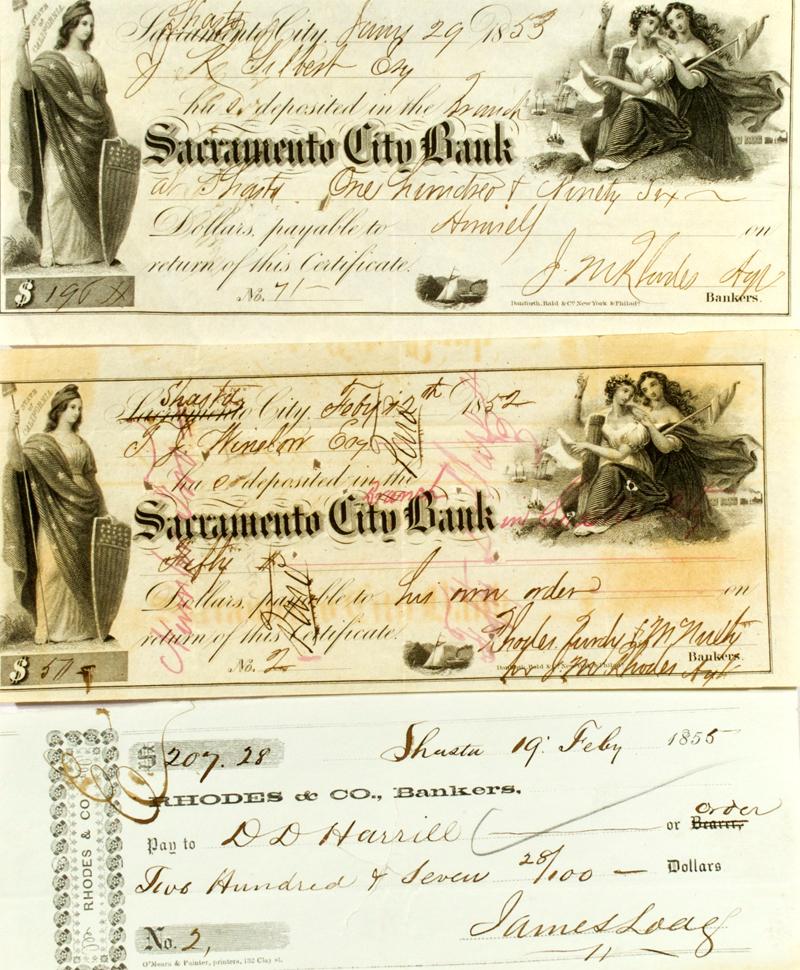 STATE OF CALIFORNIA
Shasta
Sacramento City, Jany 29 1853
J R Gilbert Esq
has deposited in the Branch
Sacramento City Bank
at Shasta One hundred & Ninety Six
Dollars, payable to himself on
return of this Certificate.
J. M Rhodes Agt
$ 196
No. 71
Danforth, Bald & Co. New York & Philada.
Bankers.
STATE OF CALIFORNIA
Shasta
Sacramento City, Feby 12th 1852
J. Winslow Esq
has deposited in the
Branch
Sacramento City Bank
Fifty
Dollars, payable to his own order on
return of this Certificate.
Rhodes, Purdy & McNulty
Bankers.
$ 50
No. 2
Danforth, Bald & Co. New York & Philada.
pr J. M. Rhodes Agt
$ 207.28
Shasta 19 Feby 1855
RHODES & CO., Bankers.
RHODES & CO.
order
Pay to D D Harrill or Bearer,
Two Hundred & Seven 28/100 Dollars
No. 2,
James Loag
O'Meara & Painter, printers, 132 Clay st.